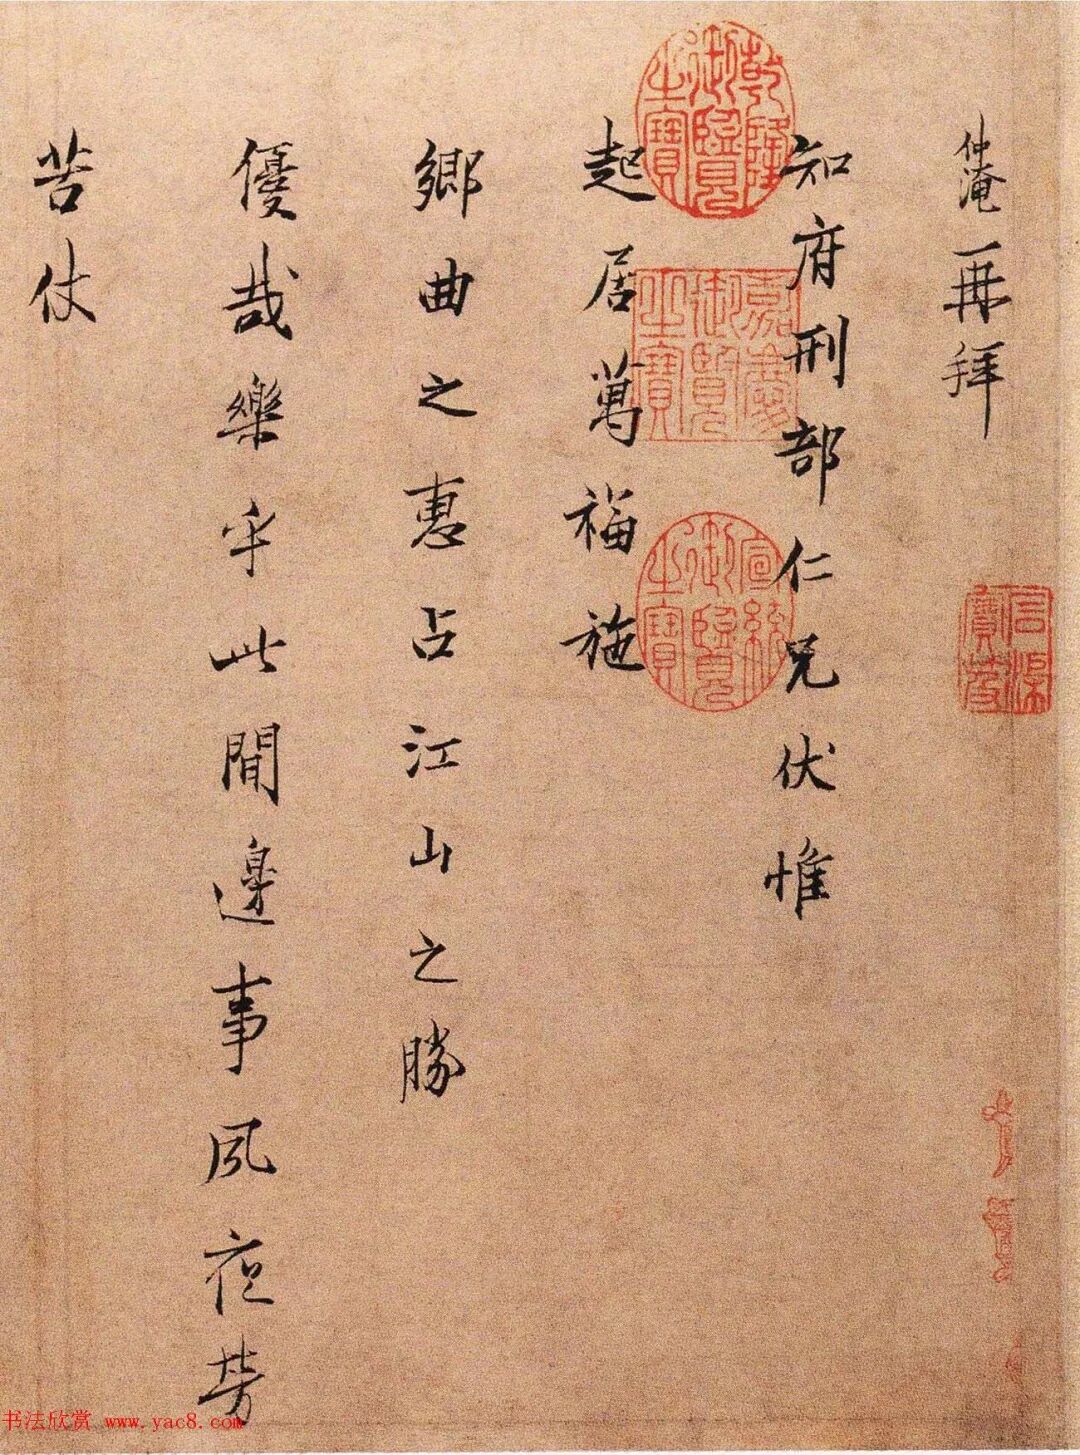 仲淹再拜
知府刑部仁兄伏惟
起居萬福施
鄉曲之惠占江山之勝
優哉樂乎此間邊事夙夜勞
苦仗
乾隆御覽之寶
嘉慶御覽之寶
宣統御覽之寶
书法欣赏 www.yac8.com